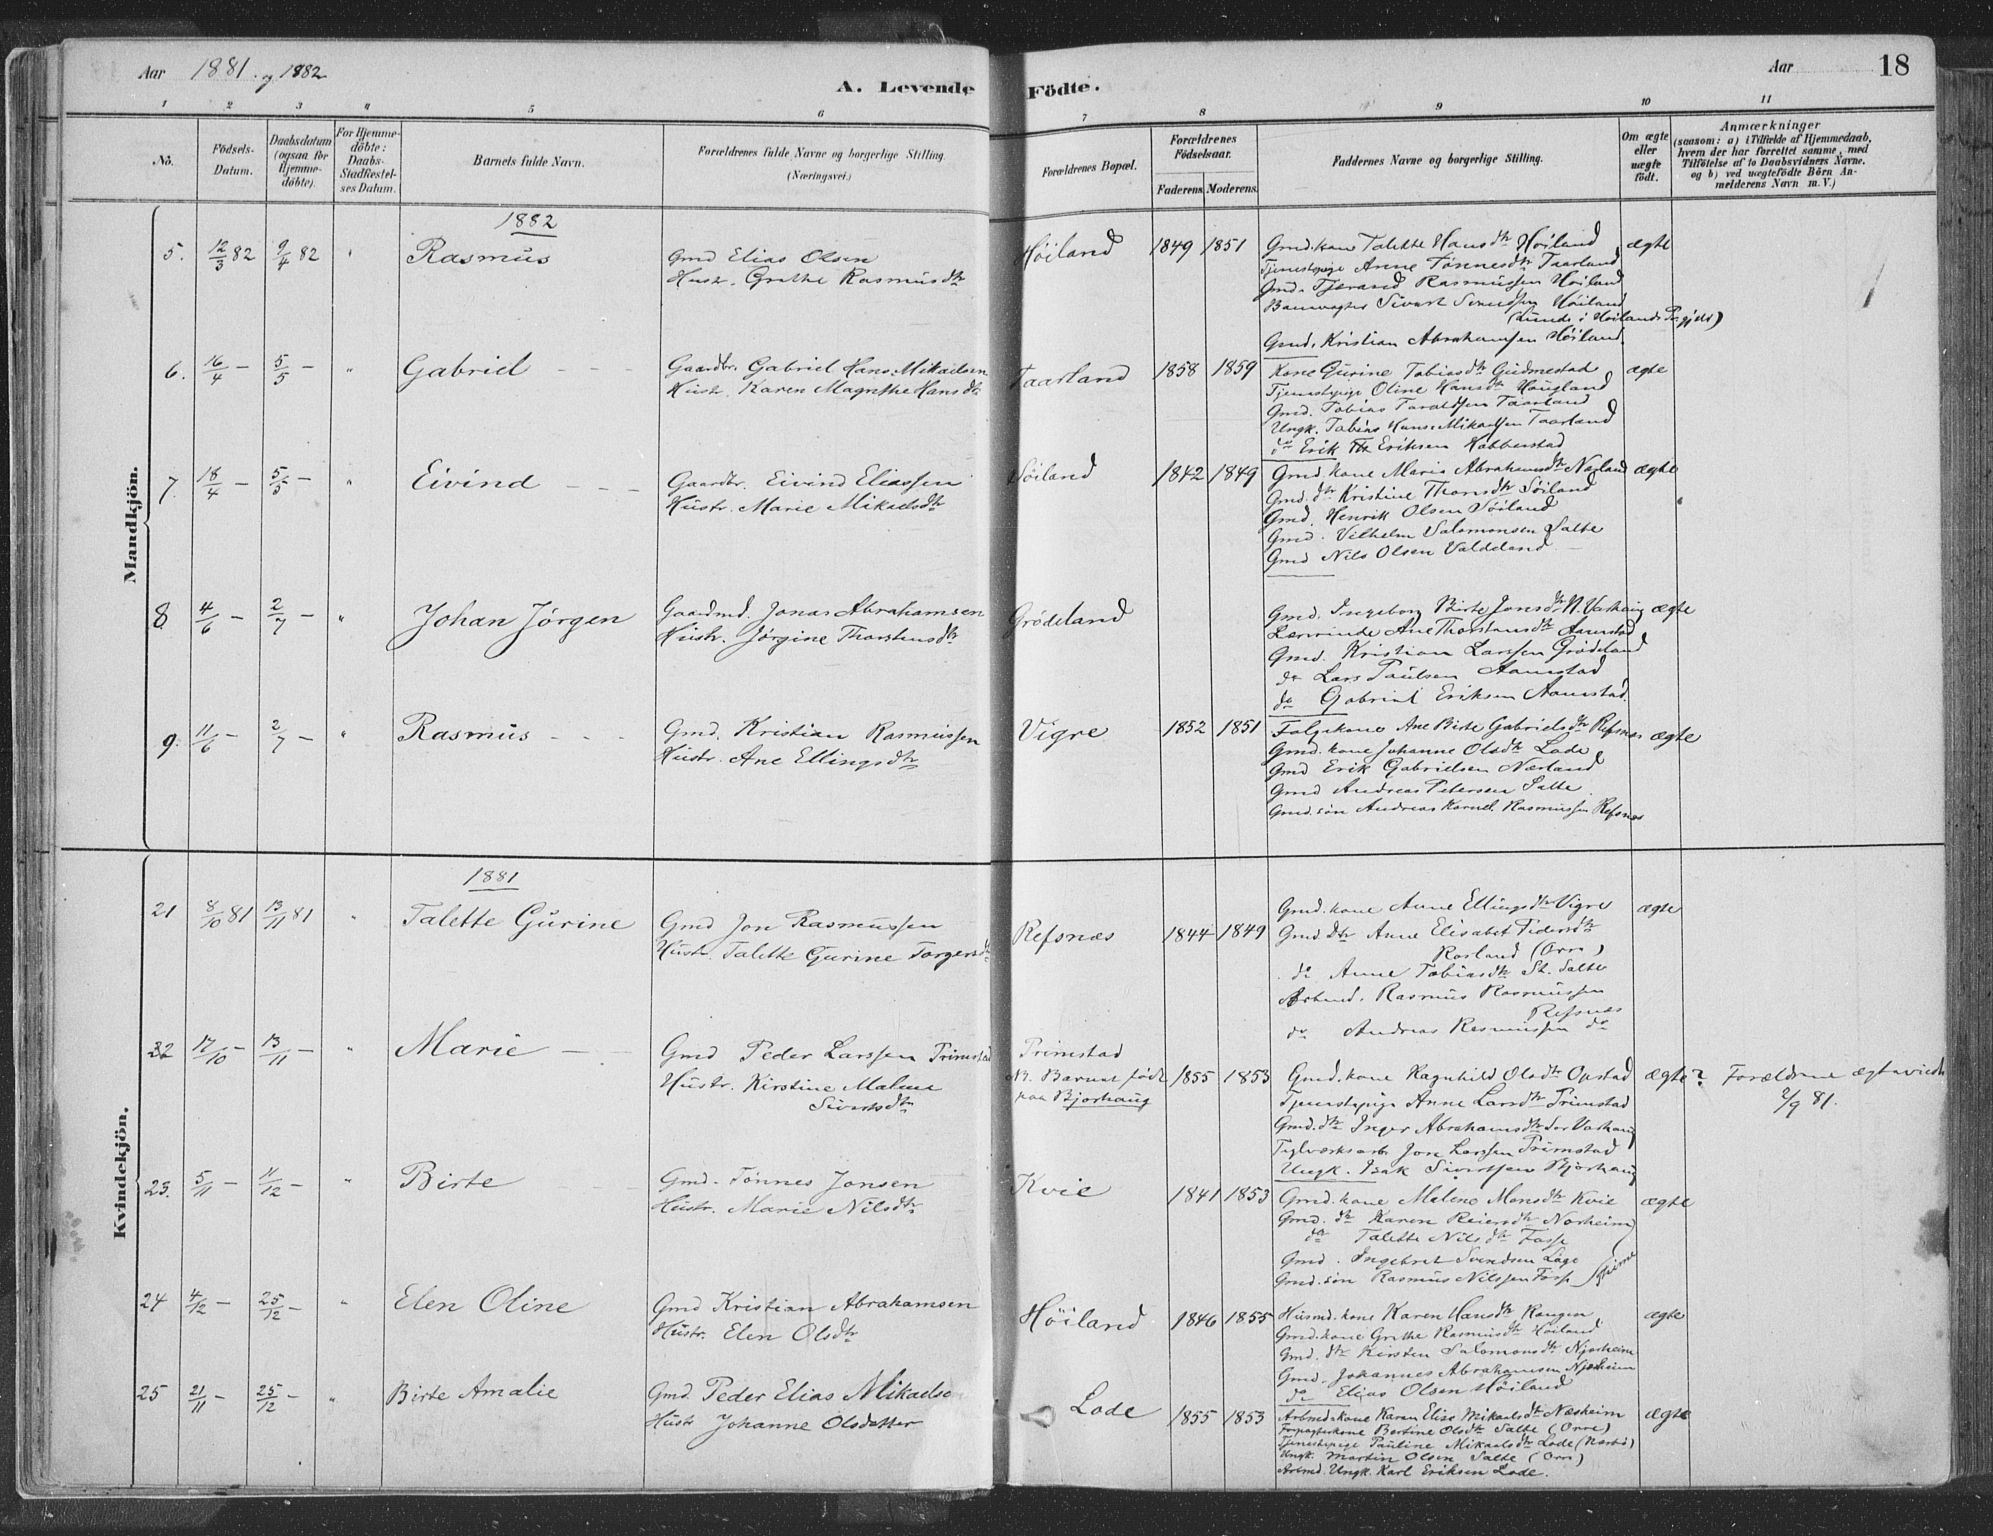 Aar 1881 og 1882
A. Levende Födte.
Aar 18
1 2 3 " 5 6 7 8 9 10 11
No.
Födsels-Datum.
Daabsdatum (ogsaa for Hjemme-döbte).
For Hjemme-döbte: Daabs-Stadfæstelses Datum.
Barnets fulde Navn.
Forældrenes fulde Navne og borgerlige Stilling. (Næringsvei.)
Forældrenes Bopæl.
Forældrenes Födselsaar.
Faderens Moderens
Faddernes Navne og borgerlige Stilling.
Om ægte eller uægte födt.
Anmærkninger
(saasom: a) i Tilfælde af Hjemmedaab, hvem der har forrettet samme, med Tilföielse af to Daabsvidners Navne. og b) ved uægtefödte Börn Anmelderens Navn m. V.)
Mandkjön.
1882
5. 12/3 82 9/4 82 " Rasmus
Gmd Elias Olsen
Hustr. Grethe Rasmusdtr
Höiland 1849 1851
Gmd.kone Talette Hansdtr Höiland
Tjenestepige Anne Tönnesdtr Taarland
Gmd. Tjerand Rasmussen Höiland
Banevogter Sivert Svendsen Höiland
(Lunde i Höilands Prgjeld)
Gmd. Kristian Abrahamsen Höiland
ægte
6. 16/4 — 5/5 — " Gabriel
Gaardbr. Gabriel Hans Mikaelsen
Hustr. Karen Magrethe Hansdtr
Taarland 1858 1859
Kone Gurine Tobiasdtr Gudmestad
Tjenestepige Oline Hansdtr Haugland
Gmd. Tobias Taraldsen Taarland
Ungk. Tobias Hans Mikaelsen Taarland
do Erik Eriksen Kobberstad
ægte
7. 18/4 — 5/5 — " Eivind
Gaardbr. Eivind Eliassen
Hustr. Marie Mikaelsdtr
Söiland 1842 1849
Gmd kone Maria Abrahamsdtr Nærland
Gmd. dtr Kristine Thorsdtr Söiland
Gmd. Henrik Olsen Söiland
Gmd. Vilhelm Salomonsen Salte
Gmd Nils Olsen Valdeland
ægte
8. 4/6 — 2/7 — " Johan Jörgen
Gaardmd. Jonas Abrahamsen
Hustr. Jörgine Thorstensdtr
Grödeland
Gmd. Ingeborg Birte Jonsdtr N. Varhaug
Lærerinde Ane Thorstensdtr Aanestad
Gmd. Kristian Larssen Grödeland
do Lars Paulsen Aanestad
do Gabriel Eriksen Aanestad.
ægte
9. 11/6 — 2/7 — " Rasmus
Gmd. Kristian Rasmussen
Hustr. Ane Ellingsdtr
Vigre 1852 1851
Folgekone Ane Birte Gabrielsdtr Refsnæs
Gmd. kone Johanne Olsdtr Lode
Gmd Erik Gabrielsen Nærland
Gmd Andreas Petersen Salte
Gmd. sön Andreas Kornel. Rasmussen Refsnæs
ægte
Kvindekjön.
1881
21 8/10 81 13/11 81 " Talette Gurine
Gmd Jon Rasmussen
Hustr. Talette Gurine Torgersdtr
Refsnæs 1844 1849
Gmd.kone Anne Ellingsdtr Vigre
Gmd dtr Anne Elisabet Pedersdtr
Rosland (Orre)
do Anne Tobiasdtr St. Salte
Arbmd. Rasmus Rasmussen
Refsnæs
do Andreas Rasmussen do
ægte
22 17/10 — 13/11 — " Marie
Gmd Peder Larssen Primstad
Hustr. Kirstine Malene
Sivertsdtr
Primstad
NB. Barnet födt
paa Bjorhaug
1855 1853
Gmd.kone Ragnhild Olsdtr Opstad
Tjenestepige Anne Larsdtr Primstad
Gmd. dtr Inger Abrahamsdtr Sör Varhaug
Teglværksarb Jon Larssen Primstad
Ungk. Isak Sivertsen Bjorhaug
ægte? Forældrene ægteviede
2/9 81.
23. 5/11 — 11/12 — " Birte
Gmd. Tönnes Jonsen
Hustr. Marie Nilsdtr
Kvie 1841 1853
Gmd.kone Malene Monsdtr Kvie
Gmd. dtr Karen Reiersdtr Norheim
do Talette Nilsdtr Fosse
Gmd. Ingebret Svendsen Löge
Gmd.sön Rasmus Nilssen Fosse
ægte
24 4/12 — 25/12 — " Elen Oline
Gmd Kristian Abrahamsen
Hustr. Elen Olsdtr
Höiland 1846 1855
Husmd.kone Karen Hansdtr Rangen
Gmd.kone Grethe Rasmusdtr Höiland
Gmd. dtr Kirsten Salomonsdtr Njærheim
Gmd. Johannes Abrahamsen Njærheim
do Elias Olsen Höiland
ægte
25 21/11 — 25/12 — " Birte Amalie
Gmd. Peder Elias Mikaelse
Hustr Johanne Olsdatter
Lode 1855 1853
Arbmdskone Karen Elise Mikaelsdtr Næsheim
Forpagterkone Bertine Olsdtr Salte (Orre)
Tjenestepige Pauline Mikaelsdtr Lode (Nærbö)
Ungk. Martin Olsen Salte (Orre)
Arbmd. Ungk. Karl Eriksen Lode.
ægte